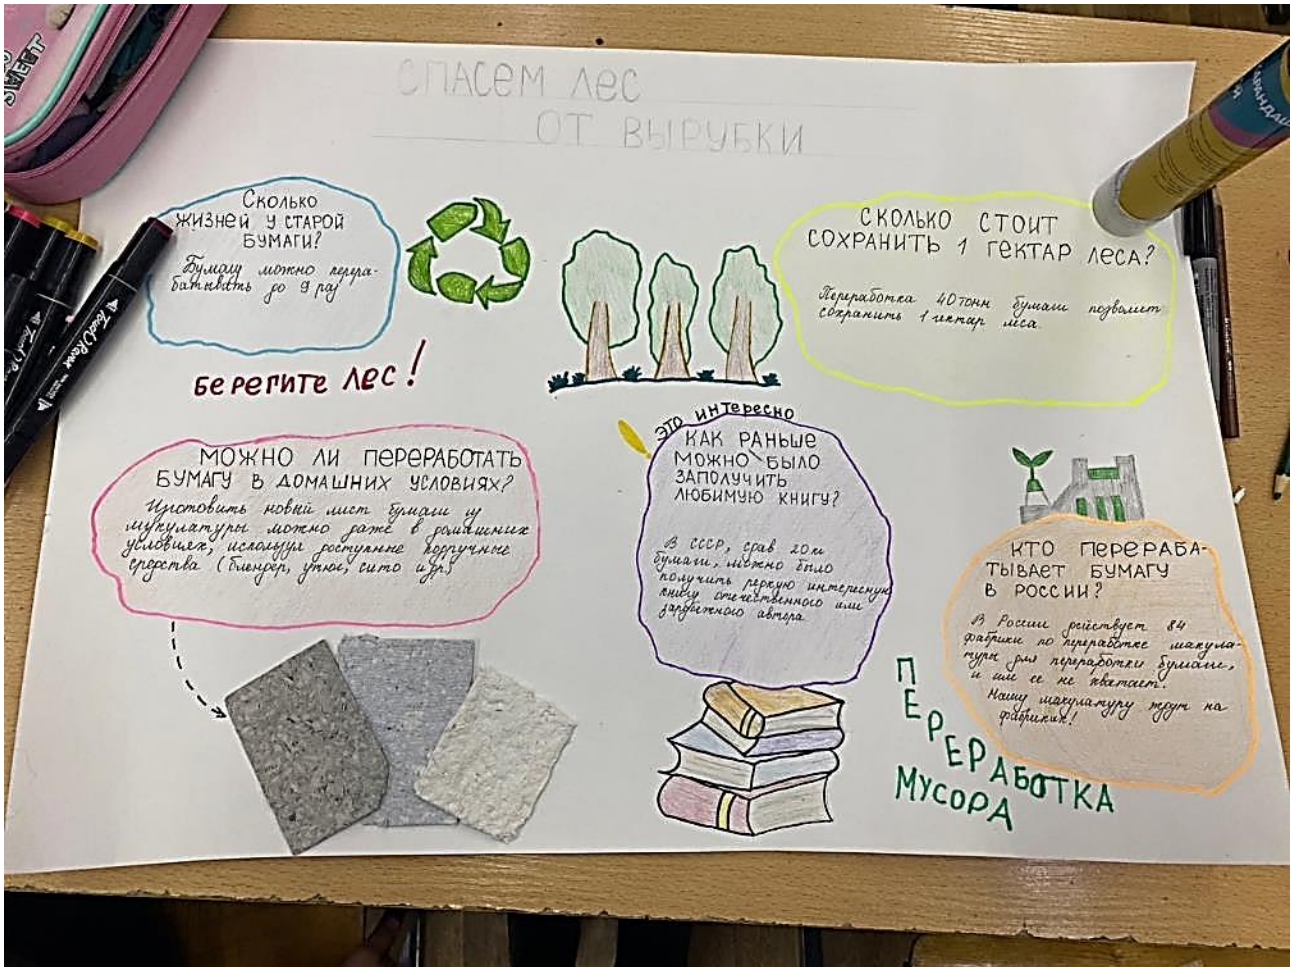 СПАСЕМ ЛЕС
ОТ ВЫРУБКИ
СКОЛЬКО
ЖИЗНЕЙ У СТАРОЙ
БУМАГИ?
Бумагу можно перера-
батывать до 9 раз
БЕРЕГИТЕ ЛЕС!
СКОЛЬКО СТОИТ
СОХРАНИТЬ 1 ГЕКТАР ЛЕСА?
Переработка 40 тонн бумаги позволит
сохранить 1 гектар леса.
МОЖНО ЛИ ПЕРЕРАБОТАТЬ
БУМАГУ В ДОМАШНИХ УСЛОВИЯХ?
Изготовить новый лист бумаги из
мукулатуры можно даже в домашних
условиях, используя доступные подручные
средства (блендер, утюг, сито и др.)
ЭТО ИНТЕРЕСНО
КАК РАНЬШЕ
МОЖНО БЫЛО
ЗАПОЛУЧИТЬ
ЛЮБИМУЮ КНИГУ?
В СССР, сдав 20 кг
бумаги, можно было
получить редкую интересную
книгу отечественного или
зарубежного автора
КТО ПЕРЕРАБА-
ТЫВАЕТ БУМАГУ
В РОССИИ?
В России действует 84
фабрики по переработке макула-
туры для переработки бумаги,
и им ее не хватает.
Нашу макулатуру ждут на
фабриках!
ПЕРЕРАБОТКА
МУСОРА
SWEET
Touch
КАРАНДАШ